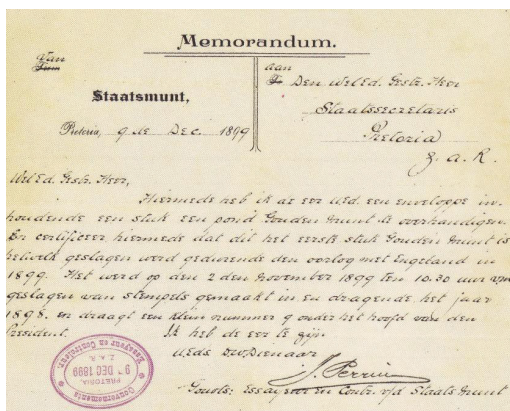 Memorandum.
Van
From
aan
To Den WelEd. Gestr. Heer
Staatsmunt,
Staatssecretaris
Pretoria, 9 de Dec. 1899
Pretoria
Z. A. R.
WelEd. Gestr. Heer,
Hiermede heb ik de eer UEd. een enveloppe in-
houdende een stuk een pond Gouden Munt te overhandigen
En certificeer hiermede dat dit het eerste stuk Gouden Munt is
hetwelk geslagen werd gedurende den oorlog met Engeland in
1899. Het werd op den 2 den November 1899 ten 10.30 uur vm
geslagen van stempels gemaakt in en dragende het jaar
1898. en draagt een klein nummer 9 onder het hoofd van den
President.
Ik heb de eer te zijn
UEds dwDienaar
J. Perrin
Gouvts: Essayeur en Contr. v/d Staats Munt
Gouvernements
Essayeur en Controleur.
PRETORIA,
9 DEC 1899
Z.A.R.